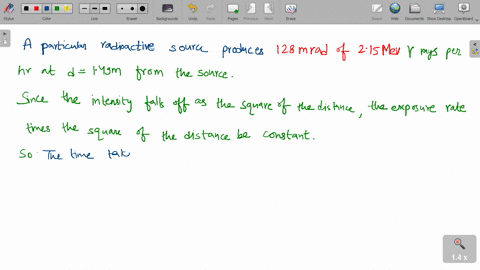 Color
Line
Eraser
Backgrounds
Undo
Redo
Page
Previous
Next
Erase
Desktop
Documents
Show Desktop
Openboard
A particular radioactive source produces 128 mrad of 2.15 Mev γ rays per
hr at d = 1.49m from the source.
Since the intensity falls off as the square of the distance, the exposure rate
times the square of the distance be constant.
So. The time tak
1.4 x